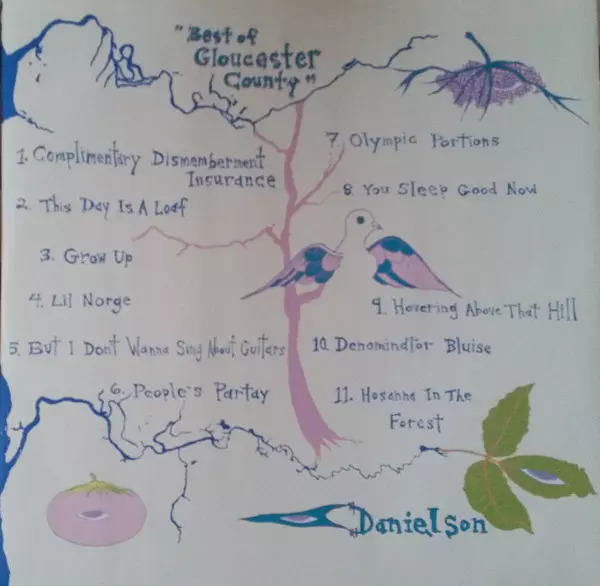 "Best of
Gloucester
County"
1. Complimentary Dismemberment
Insurance
2. This Day Is A Loaf
3. Grow Up
4. Lil Norge
5. But I Dont Wanna Sing About Guitars
6. People's Partay
7. Olympic Portions
8. You Sleep Good Now
9. Hovering Above That Hill
10. Denominator Bluise
11. Hosanna In The
Forest
Danielson